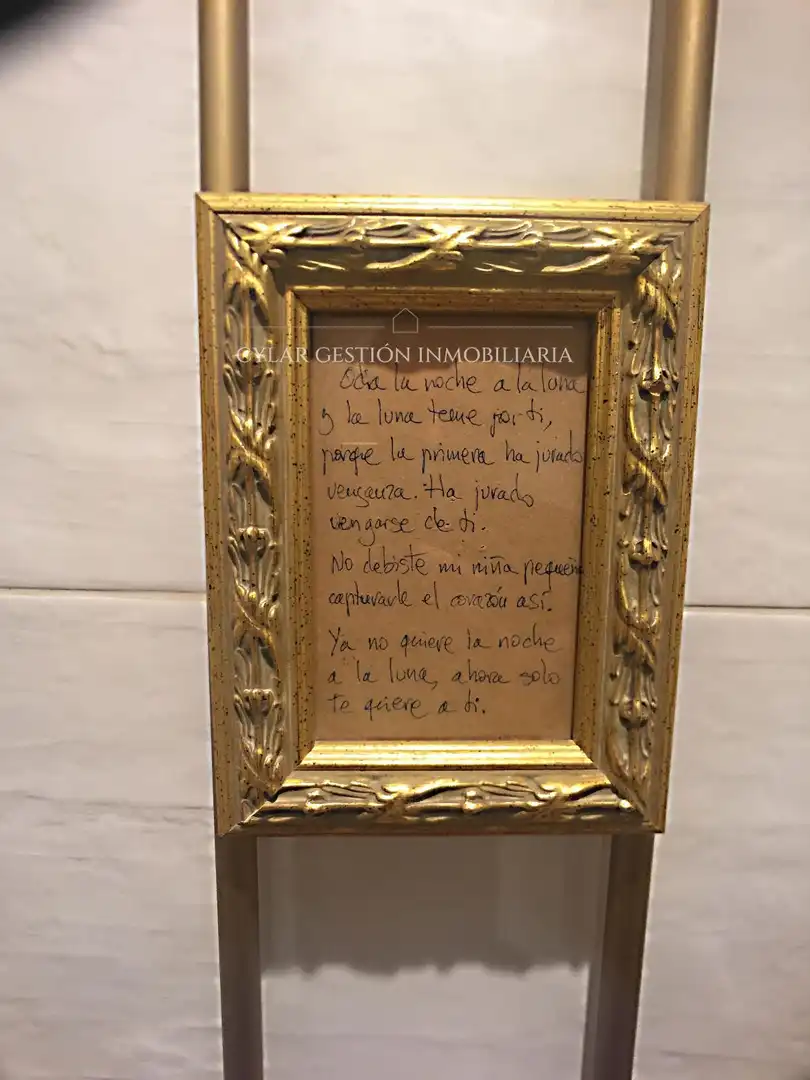 CYLAR GESTIÓN INMOBILIARIA
Odia la noche a la luna
y la luna teme por ti,
porque la primera ha jurado
venganza. Ha jurado
vengarse de ti.
No debiste mi niña pequeña
capturarle el corazón así.
Ya no quiere la noche
a la luna, ahora solo
te quiere a ti.